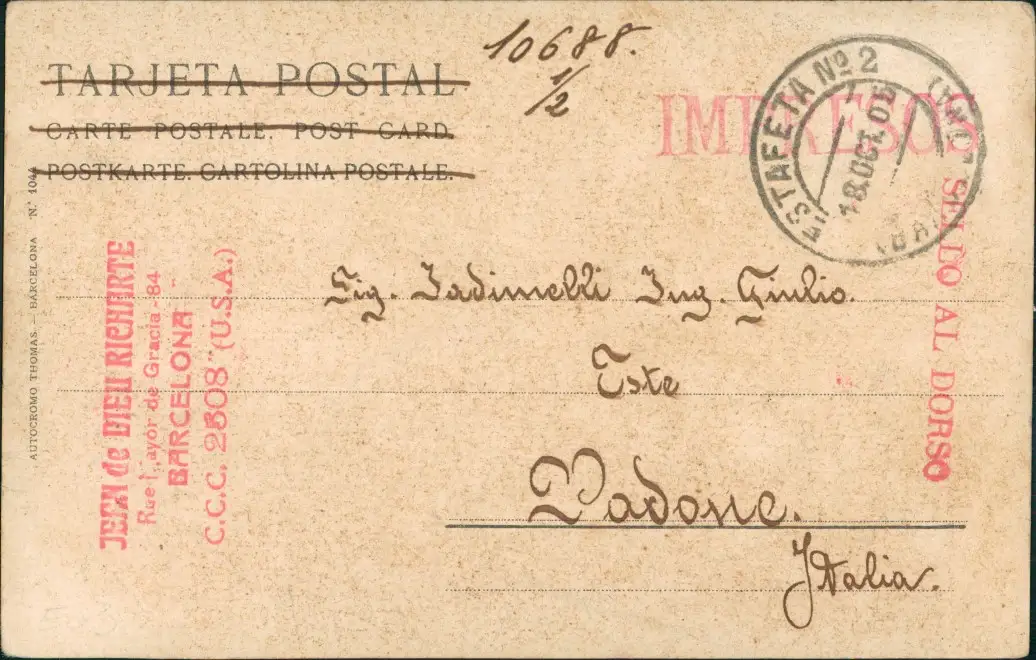 10688.
1/2
TARJETA POSTAL
CARTE POSTALE. POST CARD.
POSTKARTE. CARTOLINA POSTALE.
IMPRESOS
ESTAFETA Nº 2
18.OCT.
SELLO AL DORSO
AUTOCROMO THOMAS - BARCELONA N.º 1044
JEAN de DIEU RICHARTE
Rue Mayor de Gracia-84
BARCELONA
C.C.C. 2508 (U.S.A.)
Sig. Ing. Giulio.
Este
Padone.
Italia.